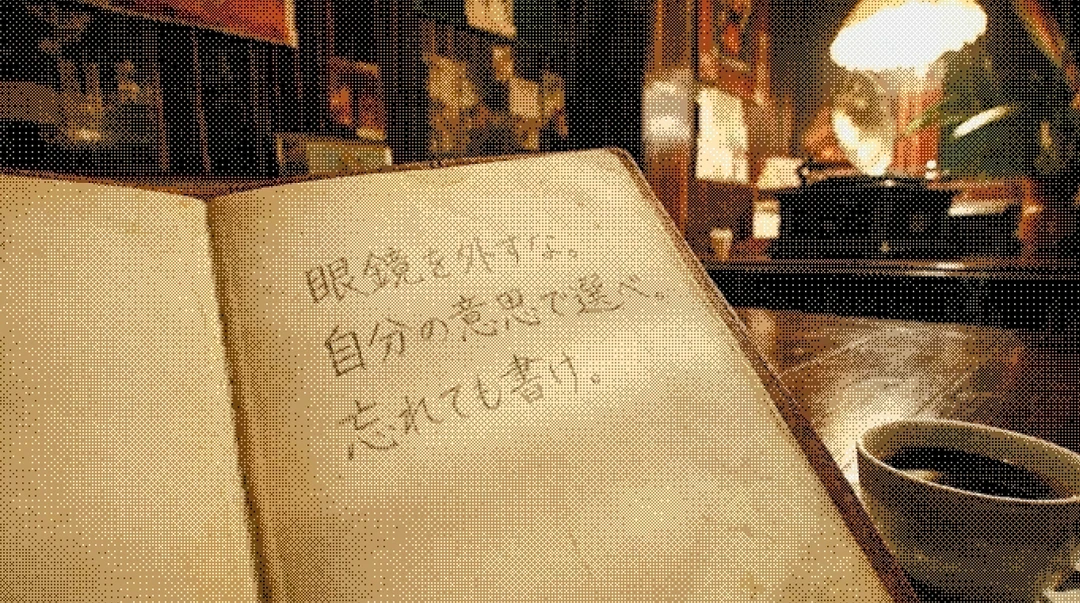 眼鏡を外すな。
自分の意思で選べ。
忘れても書け。